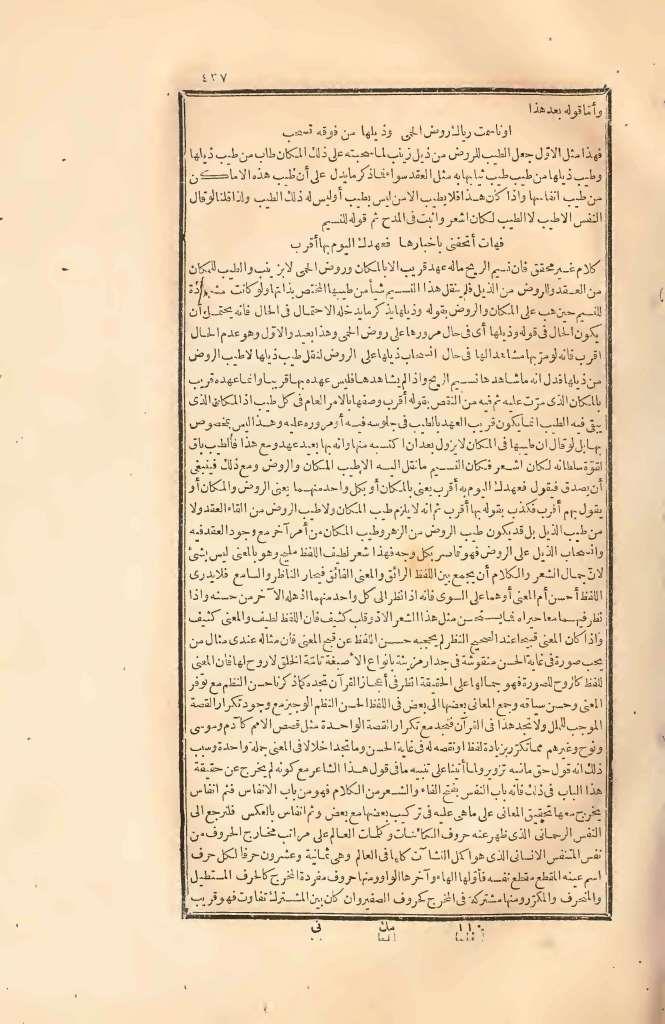 ٤٣٧
وأما قوله بعد هذا
او ناسمت رياك روض الحمى وذيلها من فوقه تسحب
فهذا مثل الاول جعل الطيب للروض من ذيل زينب لما سحبته على ذلك المكان طاب من طيب ذيلها
وطيب ذيلها من طيب طيب ثيابها به مثل العقد سواء فماذ كر ما يدل على أن طيب هذه الاماكن
من طيب انفاسها واذا كان هذا فلا يطيب الامن ليس بطيب أوليس له ذلك الطيب ولذا قلنا لو قال
النفس الاطيب لا الطيب لكان اشعر واثبت فى المدح ثم قوله للنسيم
فهات أتحفنى باخبارها فعهدك اليوم بها أقرب
كلام غير محقق فان نسيم الريح ماله عهد قريب الا بالمكان وروض الحمى لا بزينب والطيب للمكان
من العقد وللروض من الذيل فلم ينقل هذا النسيم شيأ من طيبها المختص بذاتها ولو كانت مشهودة
للنسيم حين هب على المكان والروض بقوله وذيلها يذكر ما يدخله الاحتمال فى الحال فانه يحتمل أن
يكون الحال فى قوله وذيلها أى فى حال مرورها على روض الحمى وهذا بعيد والاول وهو عدم الحال
اقرب فانه لو مر بها مشاهدا لها فى حال انسحاب ذيلها على الروض لنقل طيب ذيلها لا طيب الروض
من ذيلها فدل انه ما شاهدها نسيم الريح واذا لم يشاهدها فليس عهده بها قريبا وانما عهده قريب
بالمكان الذى مرت عليه ثم فيه من النقص بقوله أقرب وصفها بالامر العام فى كل طيب اذ المكان الذى
يبقى فيه الطيب انما يكون قريب العهد بالطيب فى جلوسه فيه أو مروره عليه وهذا ليس بمخصوص
بها بل لو قال ان طيبها فى المكان لا يزول بعد ان اكتسبه منها وانه بها بعيد عهد ومع هذا فالطيب باق
لقوة سلطانه لكان اشعر فكان النسيم ما نقل اليه الاطيب المكان والروض ومع ذلك فينبغى
أن يصدق فيقول فعهدك اليوم به أقرب يعنى بالمكان أو بكل واحد منهما يعنى الروض والمكان أو
يقول بهم أقرب فكذب بقوله بها أقرب ثم انه لا يلزم طيب المكان ولا طيب الروض من القاء العقد ولا
من طيب الذيل بل قد يكون طيب الروض من الزهر وطيب المكان من أمر آخر مع وجود العقد فيه
وانسحاب الذيل على الروض فهو قاصر بكل وجه فهذا شعر لطيف اللفظ مليح وهو بالمعنى ليس بشئ
لان جمال الشعر والكلام أن يجمع بين اللفظ الرائق والمعنى الفائق فيحار الناظر والسامع فلا يدرى
اللفظ أحسن أم المعنى أوهما على السوى فانه اذا نظر الى كل واحد منهما اذهله الآخر من حسنه واذا
نظر فيهما معا حيراه فما يستحسن مثل هذا الشعر الا ذو قلب كثيف فان اللفظ لطيف والمعنى كثيف
واذا كان المعنى قبيحا عند الصحيح النظر لم يحجبه حسن اللفظ عن قبح المعنى فان مثاله عندى مثال من
يحب صورة فى غاية الحسن منقوشة فى جدار مزينة بانواع الاصبغة تامة الخلق لا روح لها فان المعنى
للفظ كالروح للصورة فهو جمالها على الحقيقة انظر فى اعجاز القرآن تجده كما ذكرنا حسن النظم مع توفر
المعنى وحسن سياقه وجمع المعانى بعضها الى بعض فى اللفظ الحسن النظم الوجيز مع وجود تكرار القصة
الموجب للملل ولا تجد هذا فى القرآن فتجد مع تكرار القصة الواحدة مثل قصص الامم كآدم وموسى
ونوح وغيرهم مما تكرر بزيادة لفظ او نقصه له فى غاية الحسن وما تجد اخلالا فى المعنى جملة واحدة وسبب
ذلك انه قول حق ما فيه تزوير ولما أتينا على تنبيه ما فى قول هذا الشاعر مع كونه لم يخرج عن حقيقة
هذا الباب فى ذلك فانه باب النفس بفتح الفاء والشعر من الكلام فهو من باب الانفاس فثم انفاس
يخرج معها تحقيق المعانى على ما هى عليه فى تركيب بعضها مع بعض وثم انفاس بالعكس فلنرجع الى
النفس الرحمانى الذى ظهر عنه حروف الكائنات وكلمات العالم على مراتب مخارج الحروف من
نفس المتنفس الانسانى الذى هو اكمل النشآت كلها فى العالم وهى ثمانية وعشرون حرفا لكل حرف
اسم عينه المقطع مقطع نفسه فأولها الهاء وآخرها الواو ومنها حروف مفردة المخرج كالحرف المستطيل
والمنحرف والمكرر ومنها مشتركة فى المخرج كحروف الصفير وان كان بين المشترك تفاوت فهو قريب